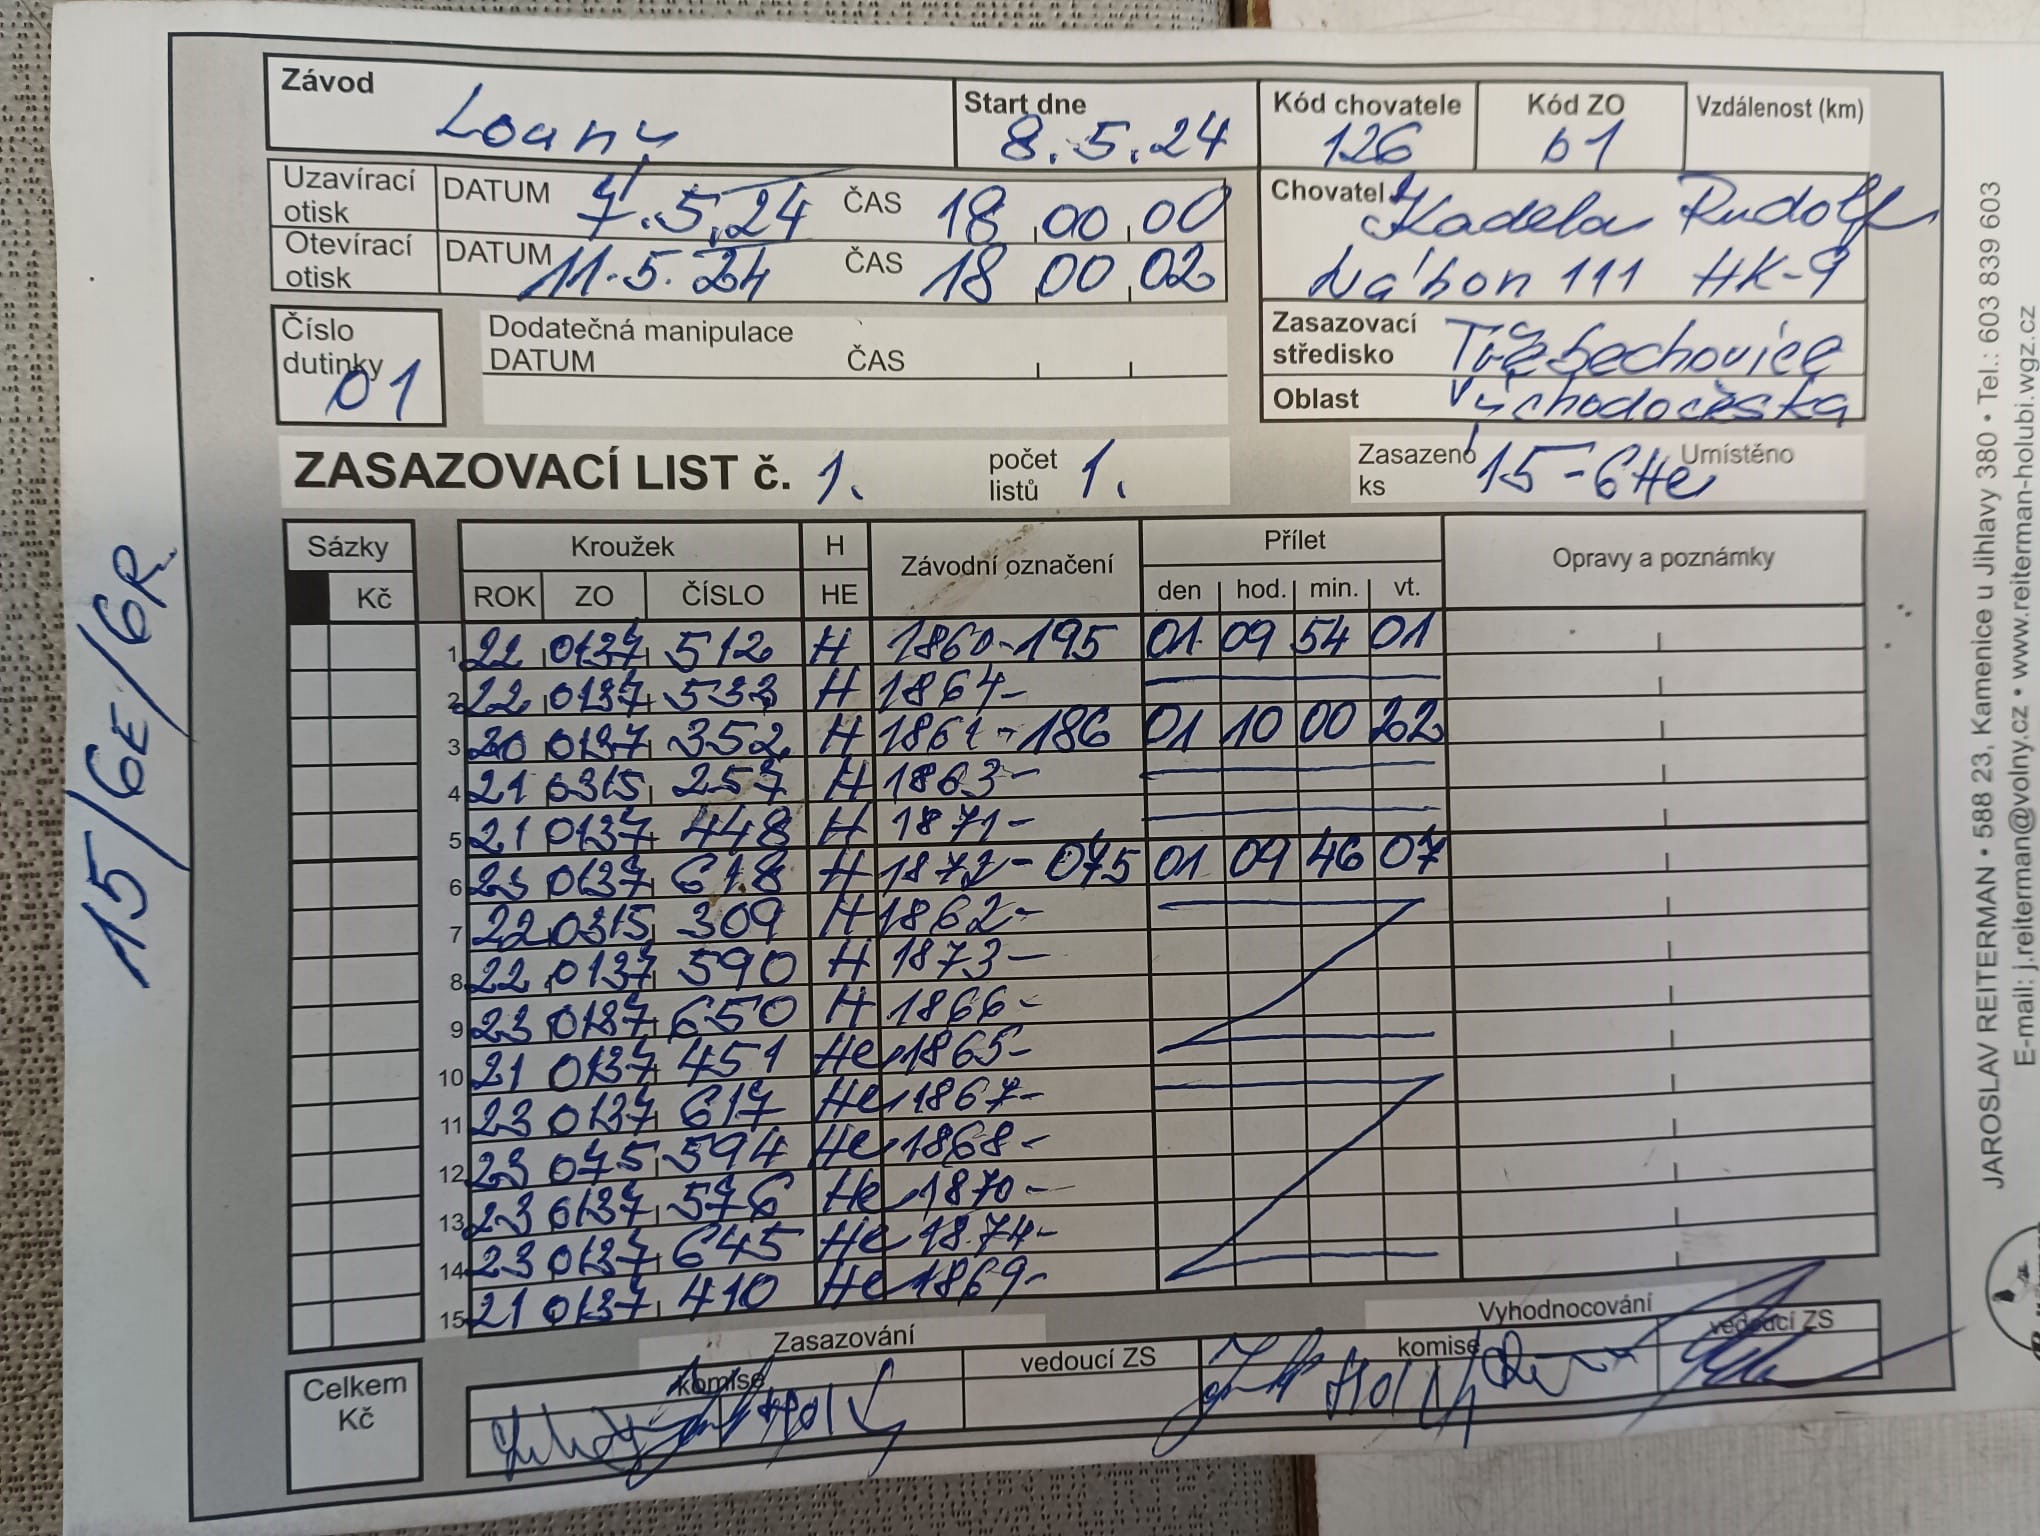 Závod Louny
Start dne 8.5.24
Kód chovatele 126
Kód ZO 61
Vzdálenost (km)
Uzavírací otisk DATUM 7.5.24 ČAS 18 00 00
Otevírací otisk DATUM 11.5.24 ČAS 18 00 02
Chovatel Kadela Rudolf
111 HK-9
Číslo dutinky 01
Dodatečná manipulace
DATUM ČAS
Zasazovací středisko Třebechovice
Oblast Východočeská
ZASAZOVACÍ LIST č. 1. počet listů 1.
Zasazeno ks 15-6He Umístěno
Sázky Kroužek H Závodní označení Přílet Opravy a poznámky
Kč ROK ZO ČÍSLO HE den hod. min. vt.
1 22 0137 512 H 1860-195 01 09 54 01
2 22 0137 533 H 1864-
3 20 0137 352 H 1861-186 01 10 00 22
4 21 0315 257 H 1863-
5 21 0137 448 H 1871-
6 23 0137 618 H 1872-075 01 09 46 07
7 22 0315 309 H 1862-
8 22 0137 590 H 1873-
9 23 0137 650 H 1866-
10 21 0137 451 He 1865-
11 23 0137 617 He 1867-
12 23 075 594 He 1868-
13 23 0137 576 He 1870-
14 23 0137 645 He 1874-
15 21 0137 410 He 1869-
Celkem Kč
Zasazování
komise vedoucí ZS
Vyhodnocování
komise vedoucí ZS
15/6E/6R
JAROSLAV REITERMAN • 588 23, Kamenice u Jihlavy 380 • Tel.: 603 839 603
E-mail: j.reiterman@volny.cz • www.reiterman-holubi.wgz.cz